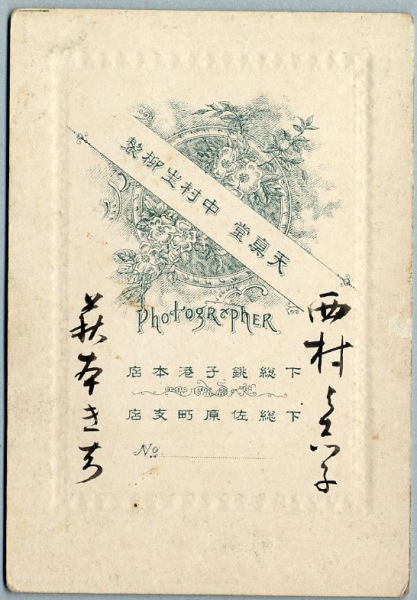 西村
天眞堂 中村生柳製
Photographer
下総銚子港本店
下総佐原町支店
No
萩本きち